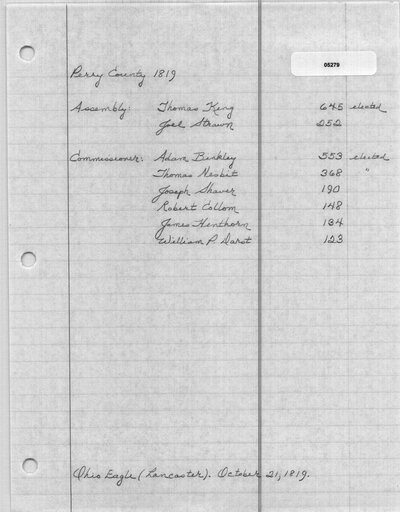 05279
Perry County 1819
Assembly: Thomas King 645 elected
Joel Strawn 252
Commissioner: Adam Binkley 553 elected
Thomas Nesbit 368 "
Joseph Shaver 190
Robert Collom 148
James Henthorn 134
William P. Darst 123
Ohio Eagle (Lancaster). October 21, 1819.